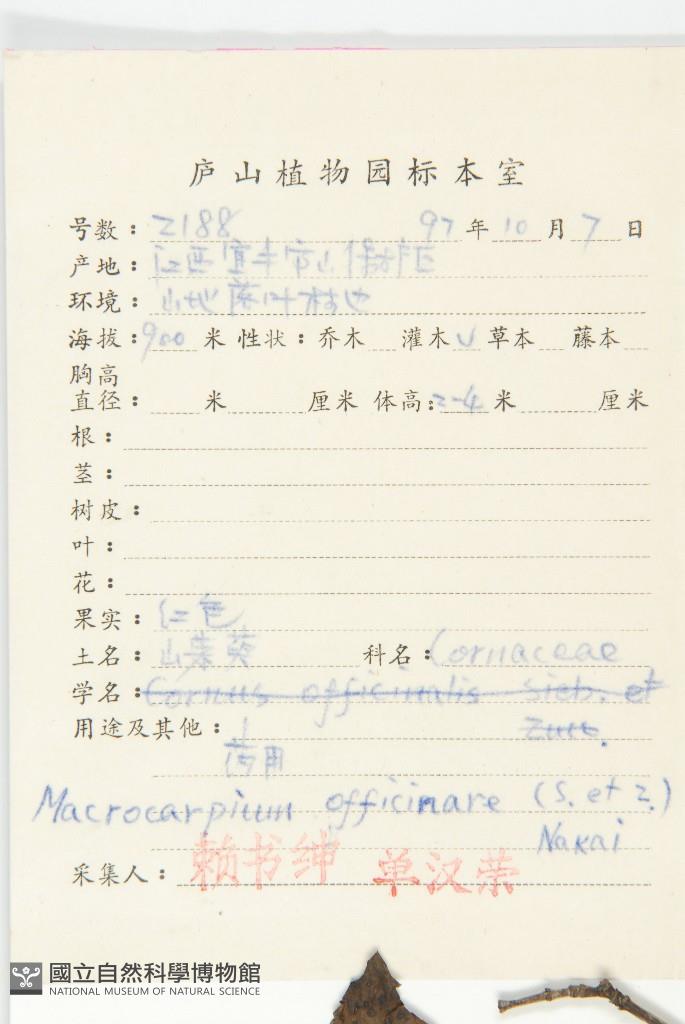 庐山植物园标本室
号数：2188 97年10月7日
产地：江西宜丰官山保护区
环境：山地落叶林地
海拔：900米 性状：乔木 灌木√ 草本 藤本
胸高
直径： 米 厘米 体高：2-4米 厘米
根：
茎：
树皮：
叶：
花：
果实：红色
土名：山茱萸 科名：Cornaceae
学名：Cornus officinalis Sieb. et
Zucc.
用途及其他：
药用
Macrocarpium officinare (S. et Z.)
Nakai
采集人：赖书绅 单汉荣
國立自然科學博物館
NATIONAL MUSEUM OF NATURAL SCIENCE